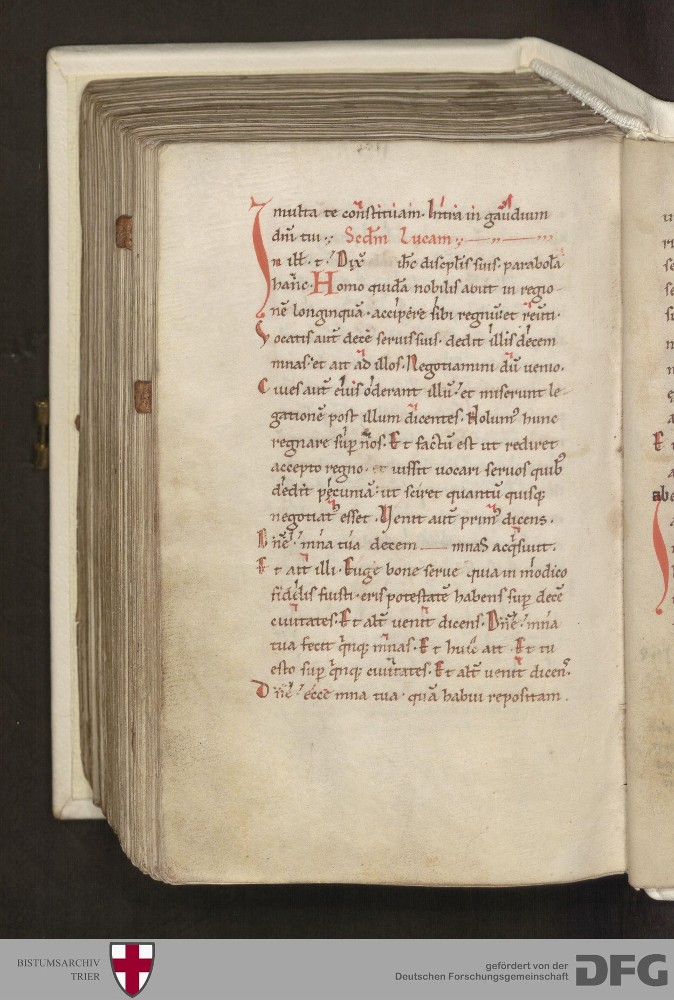 multa te constituam. Intra in gaudium
dn̄i tui. Scd̄m Lucam
In ill̄. t̄. Dix̄ ih̄c discipl̄is suis. parabolā
hanc. Homo quidā nobilis abiit in regio
nē longinquā. accipere sibi regnū. et reuti.
Vocatis aut̄ decē seruis suis. dedit illis decem
mnas. et ait ad illos. Negotiamini dū uenio.
Ciues aut̄ eius oderant illū. et miserunt le
gationē post illum dicentes. Nolum᷒ hunc
regnare sup̄ nos. Et factū est ut rediret
accepto regno. et iussit uocari seruos quib᷒
dedit pecuniā. ut sciret quantū quisq;
negotiat᷒ esset. Venit aut̄ prim᷒ dicens.
Dn̄e. mna tua decem mnas acq̇siuit.
Et ait illi. Euge bone serue quia in modico
fidelis fuisti. eris potestatē habens sup̄ decē
ciuitates. Et alt̄ uenit dicens. Dn̄e. mna
tua fecit q̇nq; mnas. Et huic ait. Et tu
esto sup̄ q̇nq; ciuitates. Et alt̄ uenit dicen᷒.
Dn̄e. ecce mna tua. quā habui repositam.
BISTUMSARCHIV
TRIER
gefördert von der
Deutschen Forschungsgemeinschaft
DFG